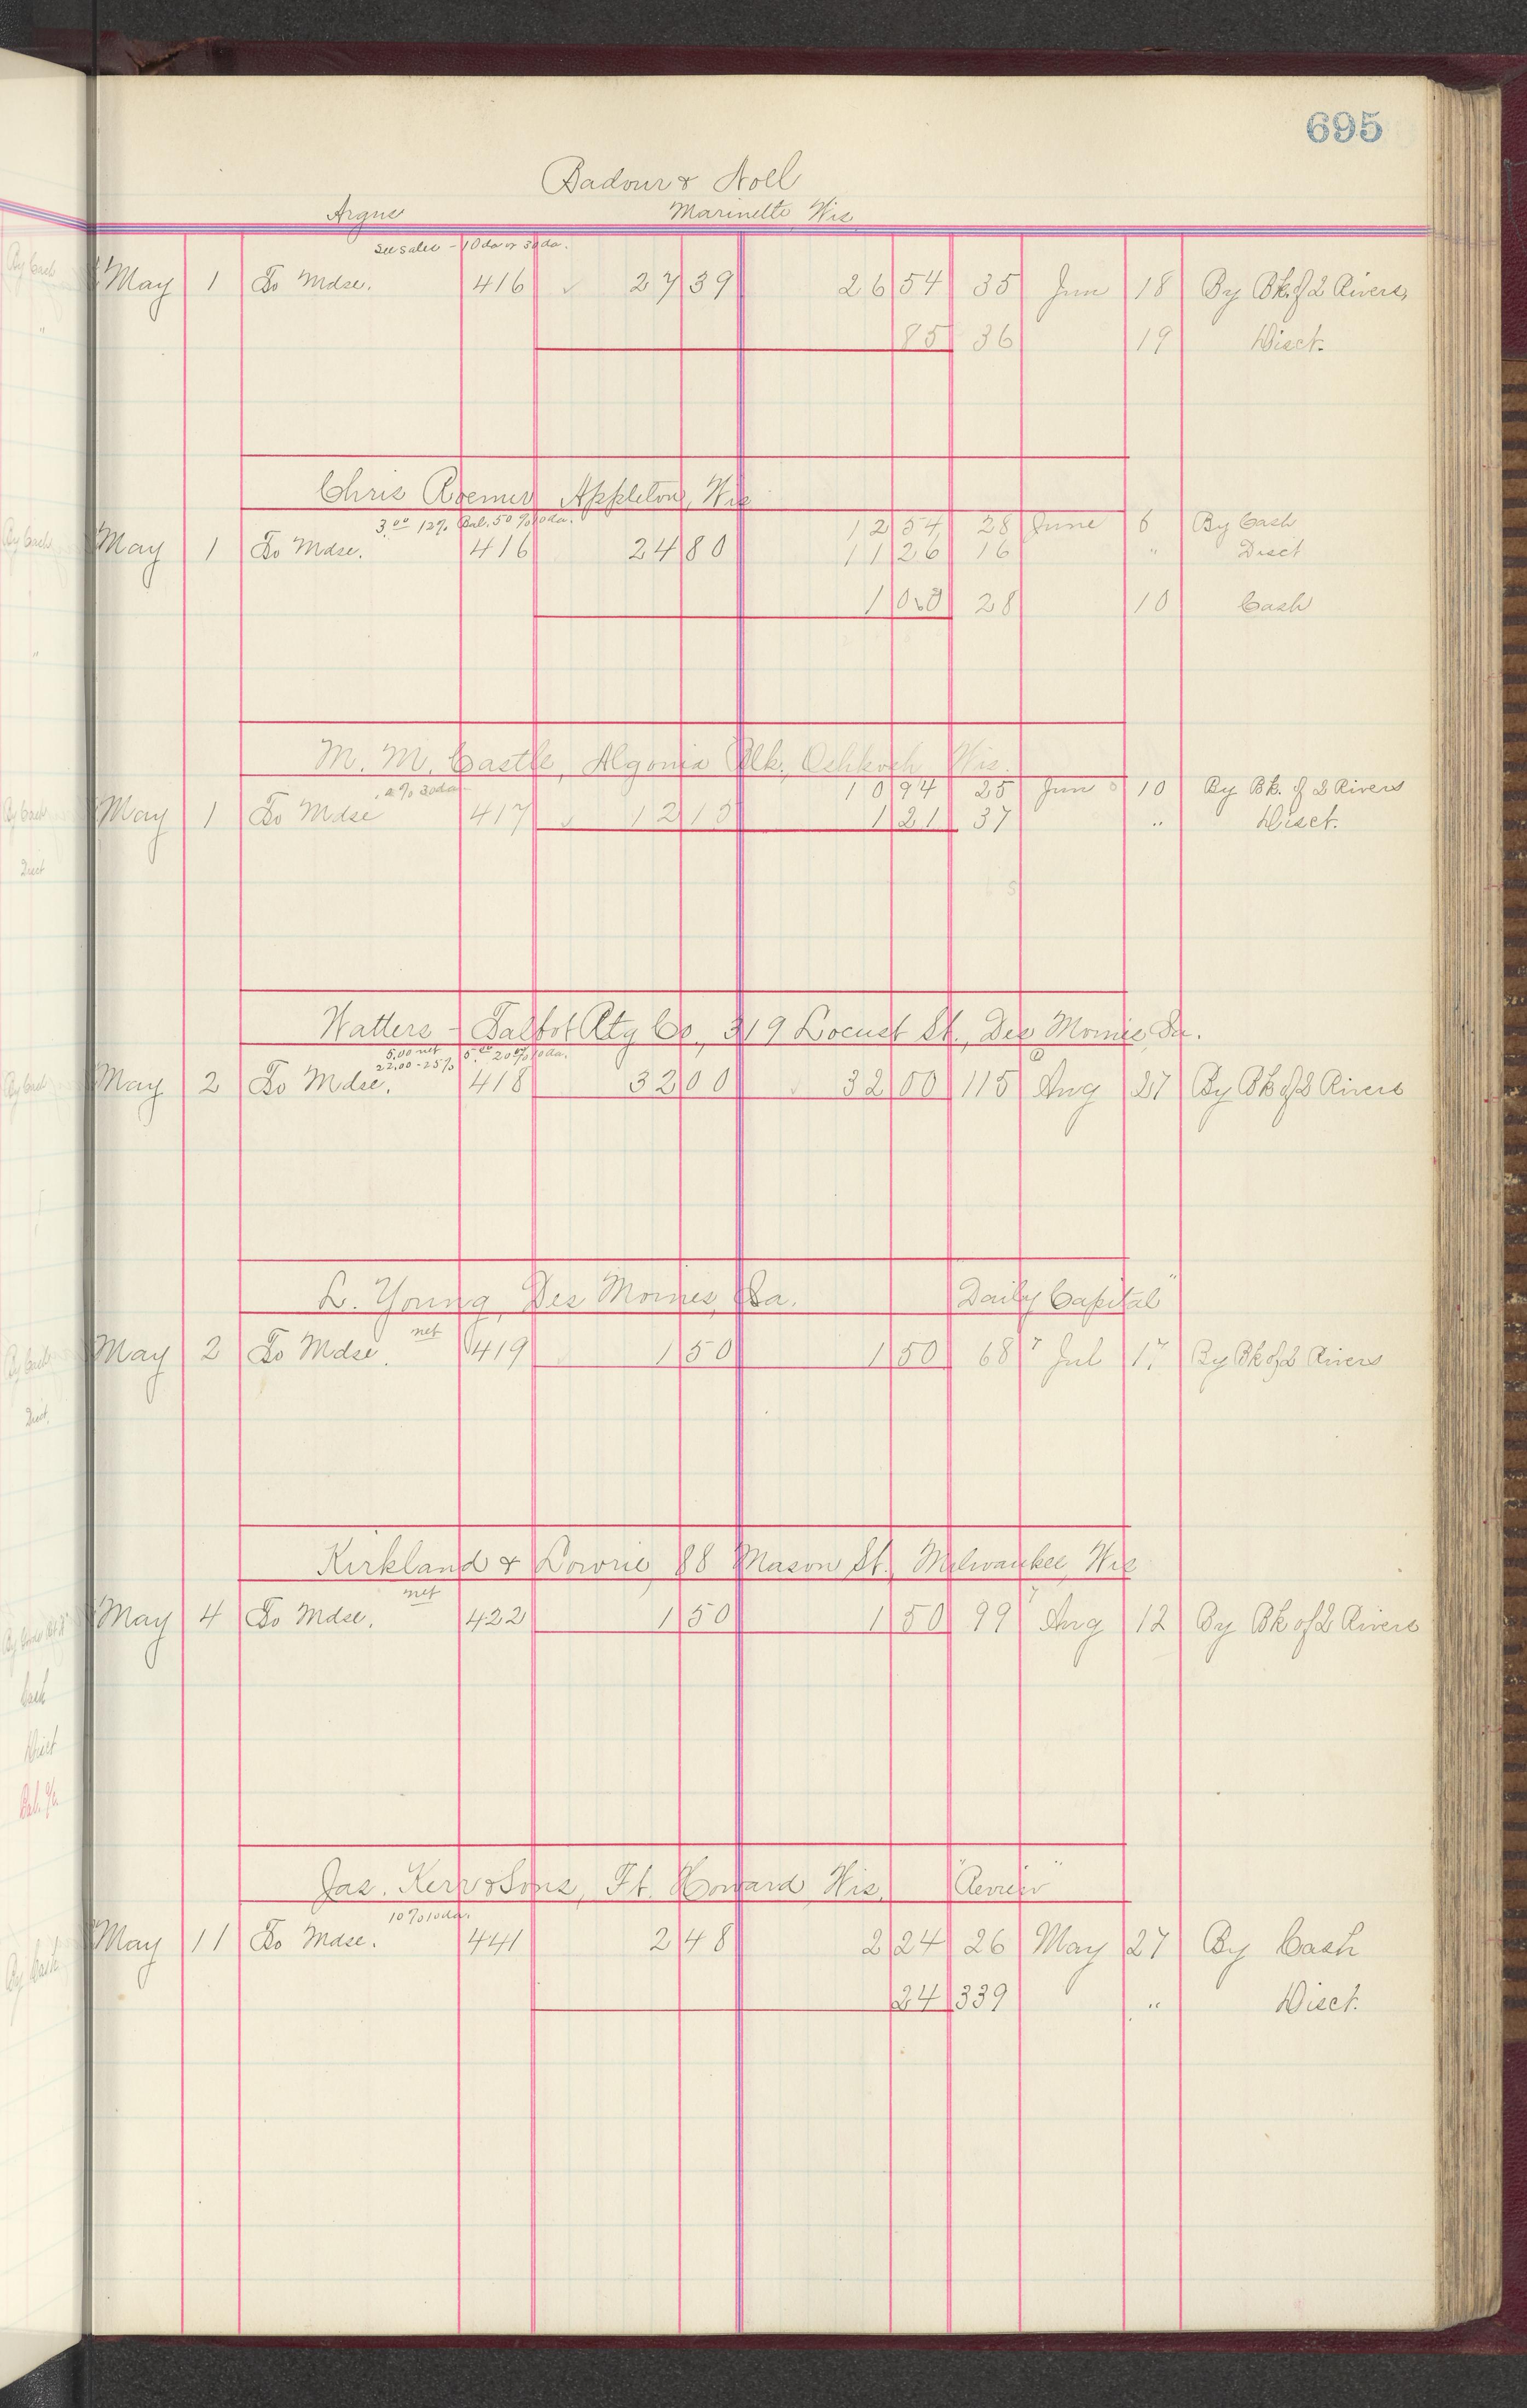 695
Badour & Noll
Argus Marinette Wis
See sales - 10 da or 30 da.
May 1 To Mdse. 416 ✓ 27 39 26 54 35 Jun 18 By Bk. of 2 Rivers
85 36 19 Disct.
Chris Roemer Appleton, Wis
3.00 12% Bal. 50% 10 da. 12 54 28 June 6 By Cash
May 1 To Mdse. 416 24 80 11 26 16 " Disct
1 00 28 10 Cash
M. M. Castle, Algoma Blk. Oshkosh Wis.
10 94 25 Jun 10 By Bk. of 2 Rivers
May 1 To Mdse 417 ✓ 12 15 1 21 37 " Disct.
Watters - Talbot Ptg Co., 319 Locust St., Des Moines, Ia.
5.00 net 5.00 20% 10 da.
22.00 - 25%
May 2 To Mdse. 418 32 00 ✓ 32 00 115 Aug 27 By Bk of 2 Rivers
L. Young, Des Moines, Ia. "Daily Capital"
net
May 2 To Mdse. 419 1 50 1 50 68 Jul 17 By Bk of 2 Rivers
Kirkland & Lowrie 88 Mason St. Milwaukee, Wis
net
May 4 To Mdse. 422 1 50 1 50 99 Aug 12 By Bk of 2 Rivers
Jas. Kerr & Sons, Ft. Howard Wis. "Review"
10% 10 da.
May 11 To Mdse. 441 2 48 2 24 26 May 27 By Cash
24 339 " Disct.